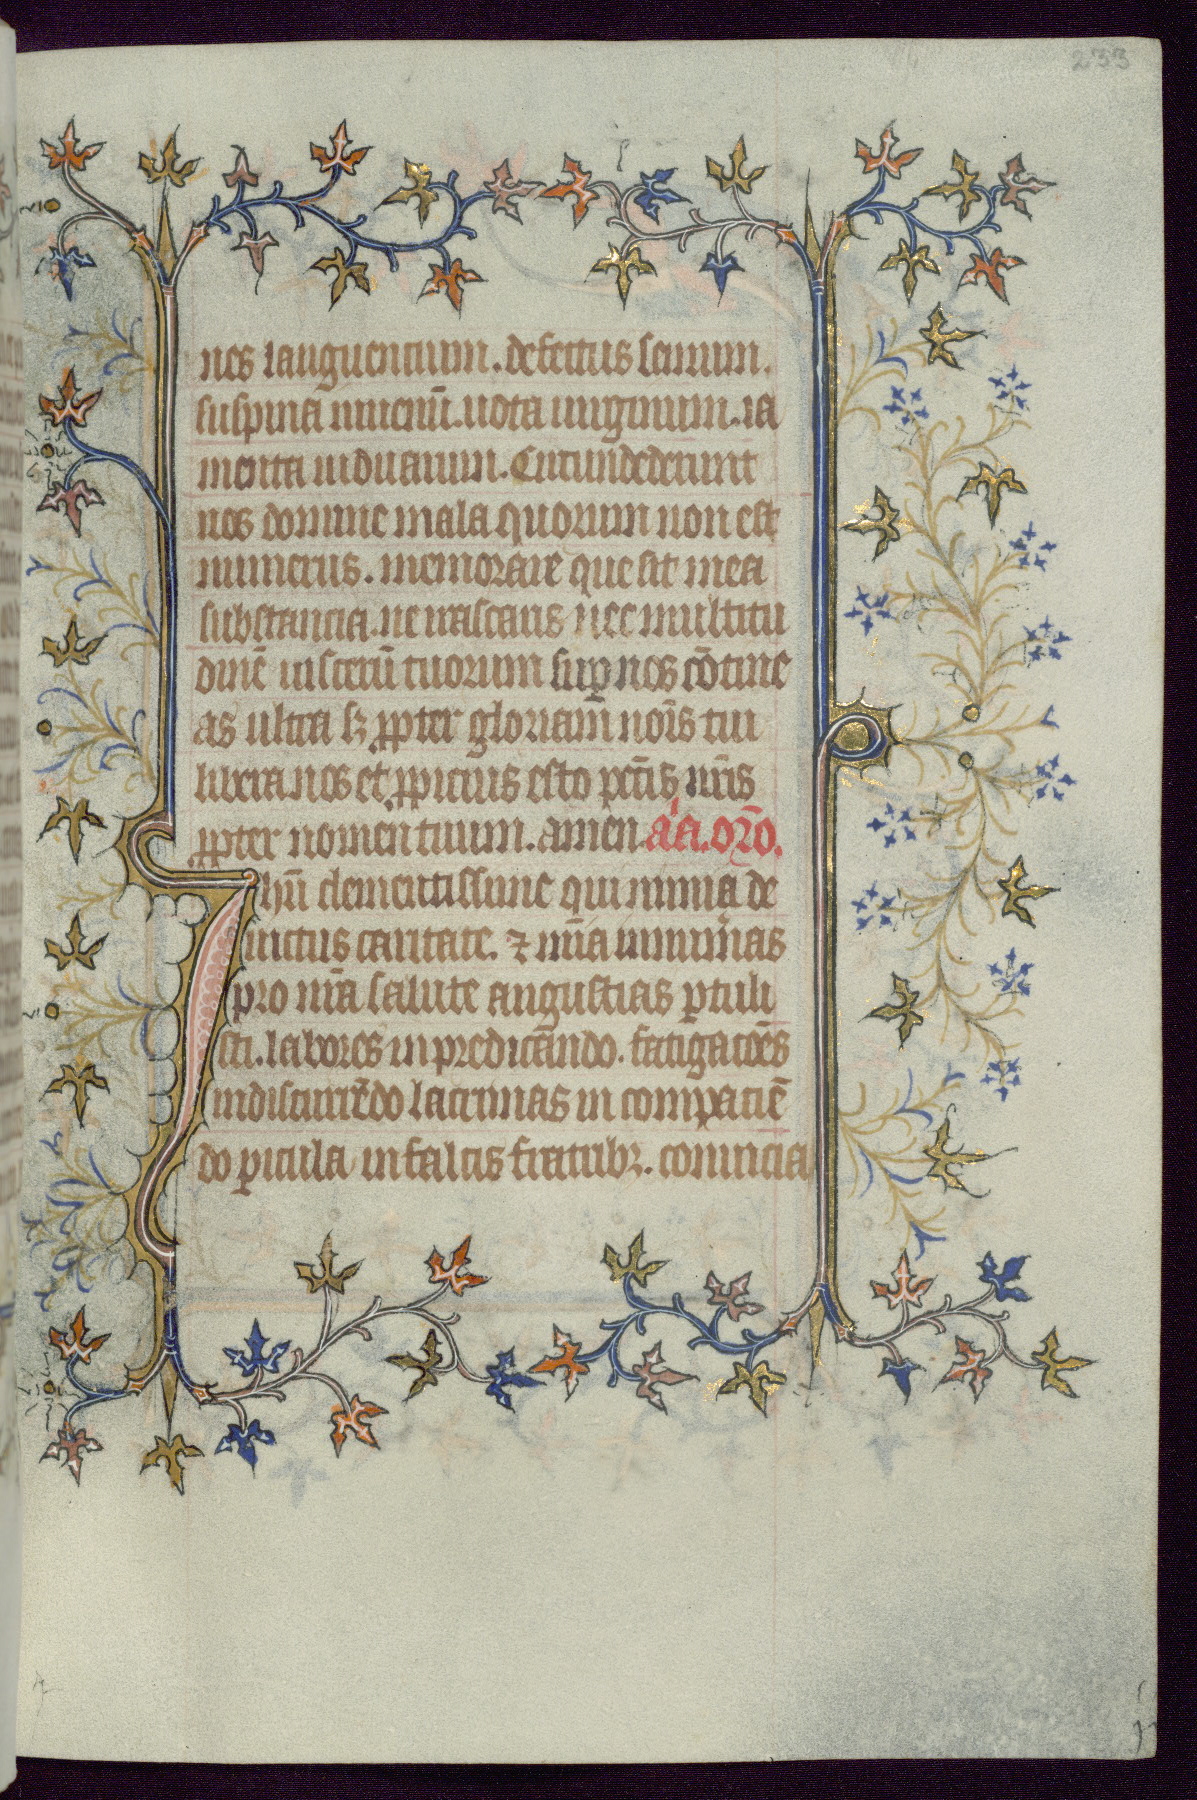 233
nes languentium. defectus senium.
suspiria iuuenū. uota uirginum. la
menta uiduarum. Circundederunt
nos domine mala quorum non est
numerus. memorare que sit mea
substancia. ne irascaris nec multitu
dinē uiscerū tuorum sup nos cōtine
as ultra sz ppter gloriam nois tui
libera nos et ppicius esto pctis nris
ppter nomen tuum. amen. aīa. orō.
Ihū clementissime qui nimia de
uictus caritate. ⁊ nīa inimicas
pro nrā salute angustias ptuli
sti. labores in predicando. fatigacōes
in discurrēdo lacrimas in compaciē
do picula in falsis fratribz. conuicia